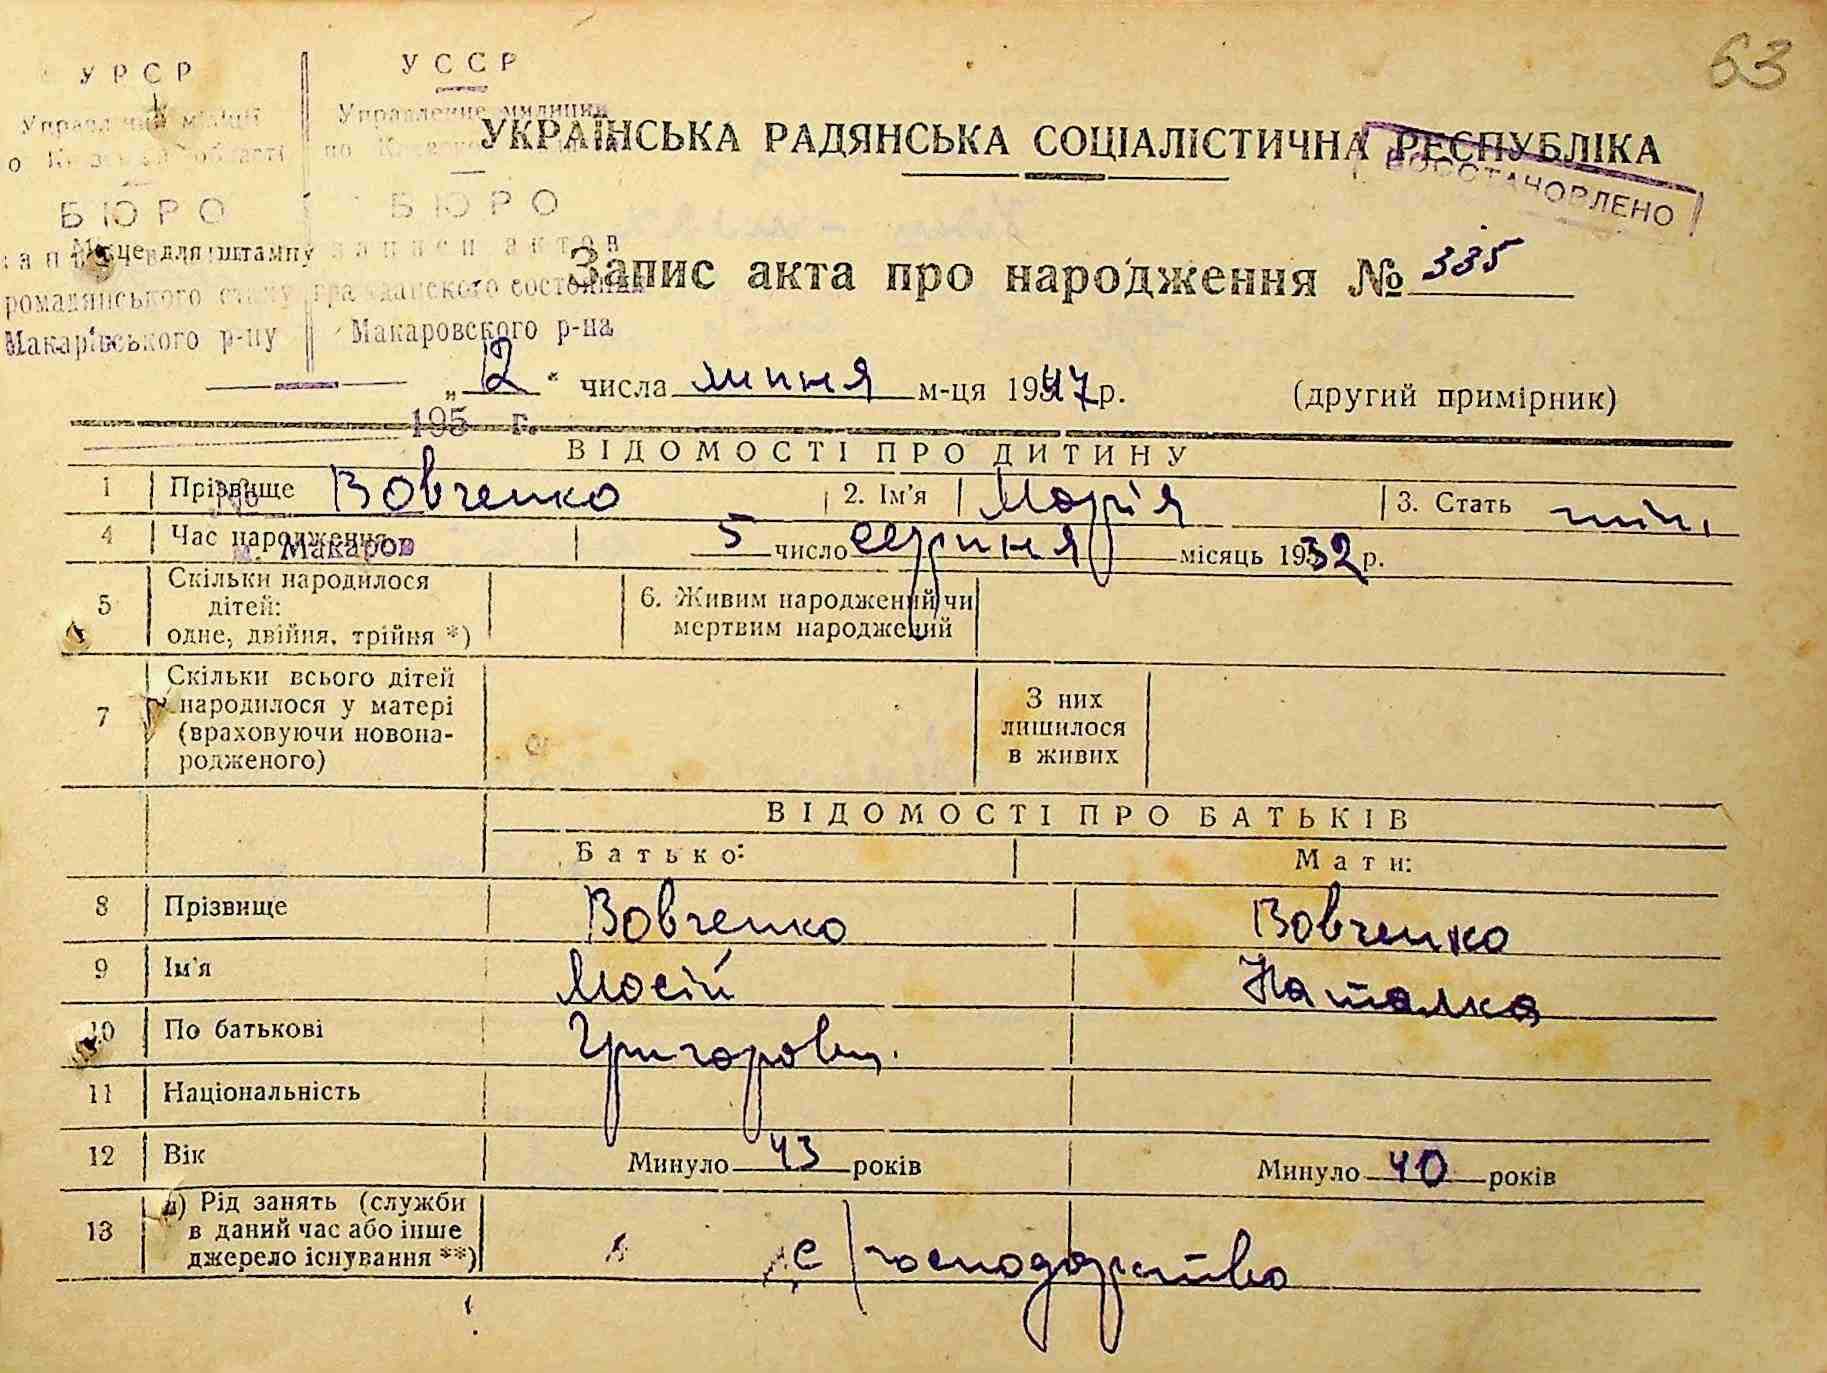 63
УРСР
УССР
Управління міліції
Управление милиции
по Київській області
по Киевской
БЮРО
БЮРО
УКРАЇНСЬКА РАДЯНСЬКА СОЦІАЛІСТИЧНА РЕСПУБЛІКА
ВОССТАНОВЛЕНО
Місце для штампу
записи актов
громадянського стану
гражданского состояния
Макарівського р-ну
Макаровского р-на
Запис акта про народження № 335
„12“ числа липня м-ця 1947 р.
(другий примірник)
195 г.
ВІДОМОСТІ ПРО ДИТИНУ
1 Прізвище Вовченко 2. Ім'я Марія 3. Стать жін.
№
4 Час народження 5 число серпня місяць 1932 р.
м. Макаров
5 Скільки народилося дітей: одне, двійня, трійня *)
6. Живим народжений чи мертвим народжений
7 Скільки всього дітей народилося у матері (враховуючи новонародженого)
З них лишилося в живих
ВІДОМОСТІ ПРО БАТЬКІВ
Батько: Мати:
8 Прізвище Вовченко Вовченко
9 Ім'я Мосій Наталка
10 По батькові Григоров.
11 Національність
12 Вік Минуло 43 років Минуло 40 років
13 а) Рід занять (служби в даний час або інше джерело існування **) с/господарство